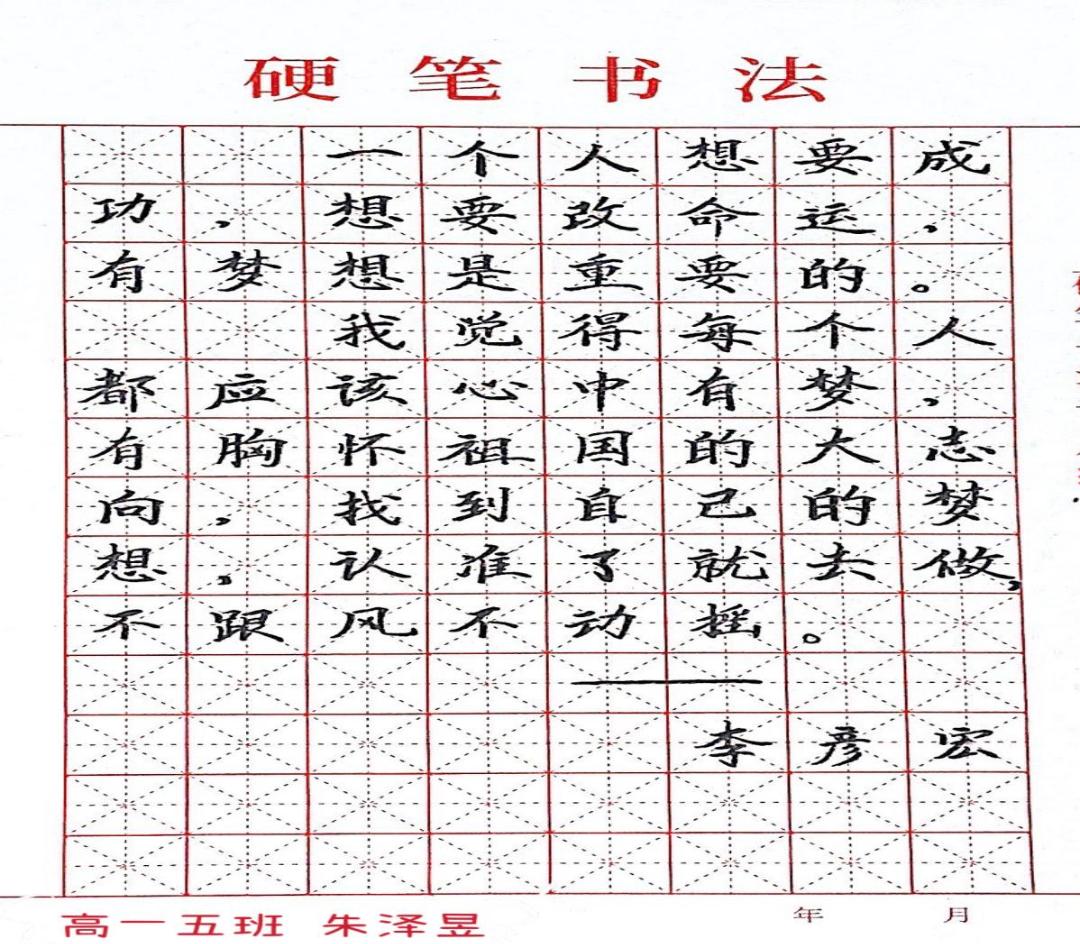 硬笔书法
一个人想要成
功，想要改命运，
有梦想是重要的。
我觉得每个人
都应该心中有梦，
有胸怀祖国的大志
向，找到自己的梦
想，认准了就去做，
不跟风不动摇。
——
李彦宏
年 月
高一五班 朱泽昱